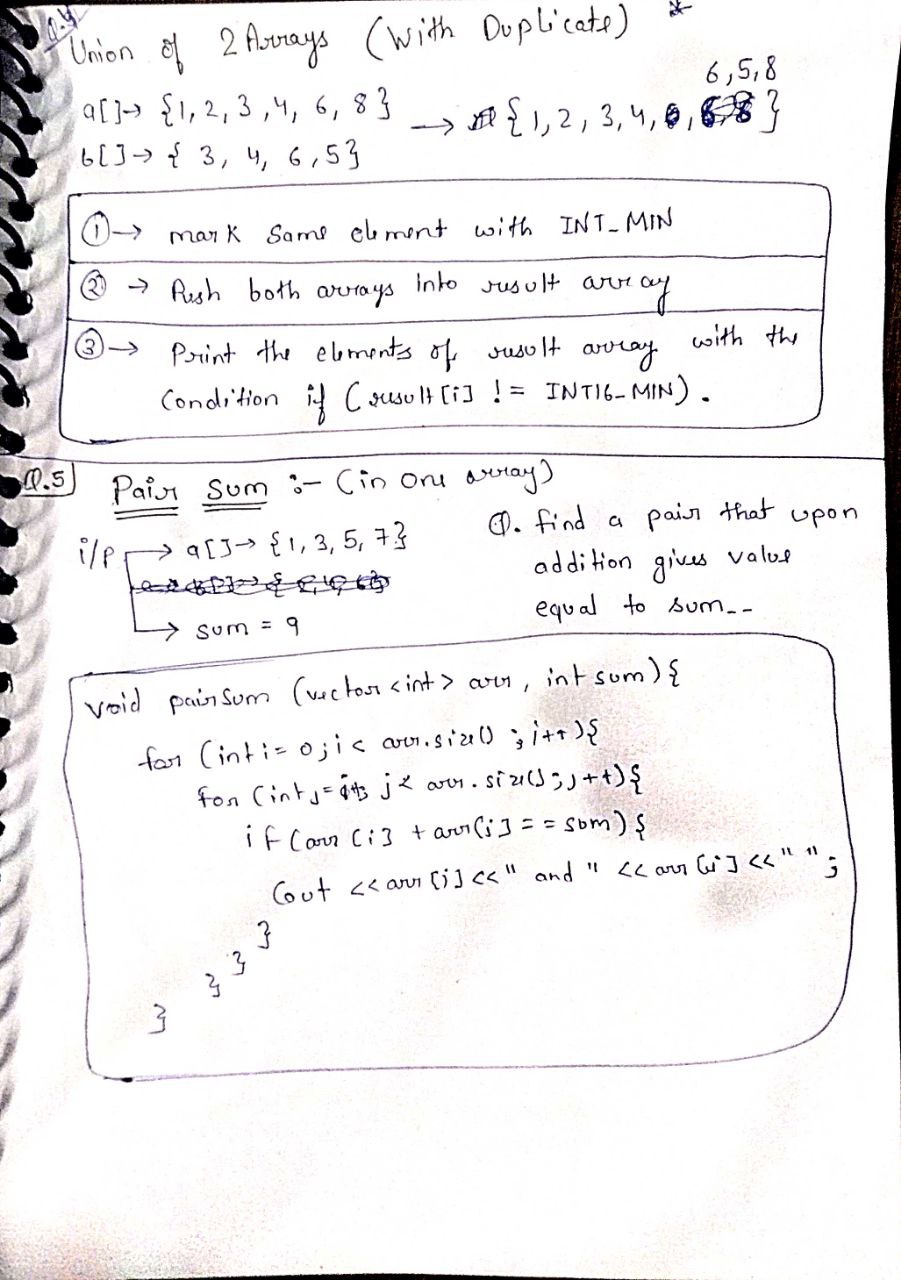 Q.4
Union of 2 Arrays (With Duplicate) *
6,5,8
a[]→ {1,2,3,4, 6, 8}
→ {1,2,3,4, }
b[]→ { 3, 4, 6,5}
①→ mark same element with INT_MIN
② → Push both arrays into result array
③→ Print the elements of result array with the
Condition if (result[i] != INT16_MIN).
Q.5 Pair Sum :- (in one array)
i/p → a[]→ {1,3,5,7}
→ sum = 9
Q. find a pair that upon
addition gives value
equal to sum--
void pairsum (vector<int> arr, int sum){
for (int i= 0;i< arr.size() ;i++){
for (int j= j< arr.size();j++){
if (arr [i] + arr[j] == sum){
Cout <<arr[i]<<" and " <<arr[j]<<" ";
}
}
}
}